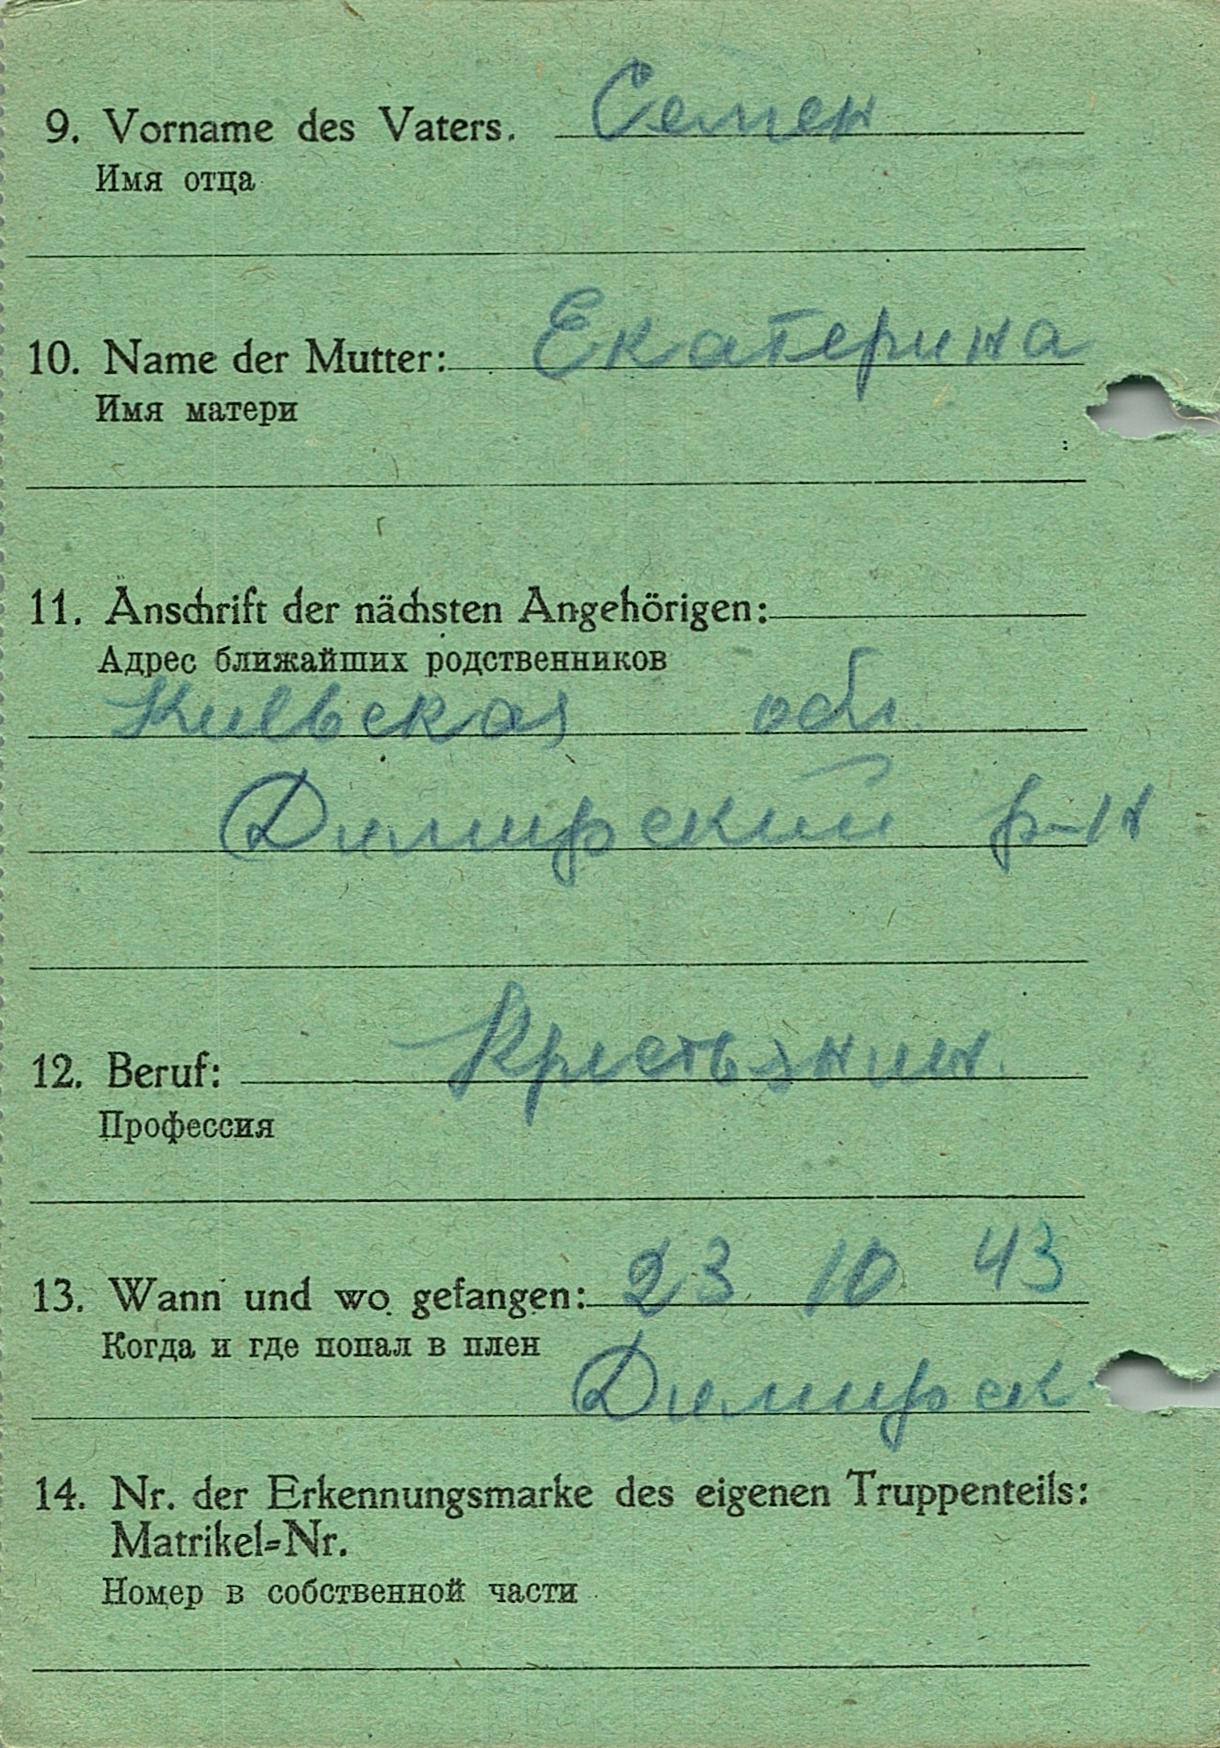 9. Vorname des Vaters. Семен
Имя отца
10. Name der Mutter: Екатерина
Имя матери
11. Anschrift der nächsten Angehörigen:
Адрес ближайших родственников
Киевская обл.
Димирский р-н
12. Beruf: Крестьянин.
Профессия
13. Wann und wo gefangen: 23 10 43
Когда и где попал в плен
Димирск
14. Nr. der Erkennungsmarke des eigenen Truppenteils:
Matrikel-Nr.
Номер в собственной части